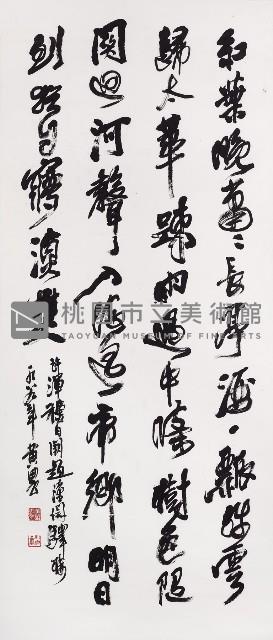 紅葉晚蕭〻長亭酒一瓢殘雲
歸太華疎雨過中條樹色隨
關迥河聲入海遙帝鄉明日
到猶自夢漁樵
許渾秋日赴闕題潼關驛樓
桃園市立美術館
TAOYUAN MUSEUM OF FINE ARTS